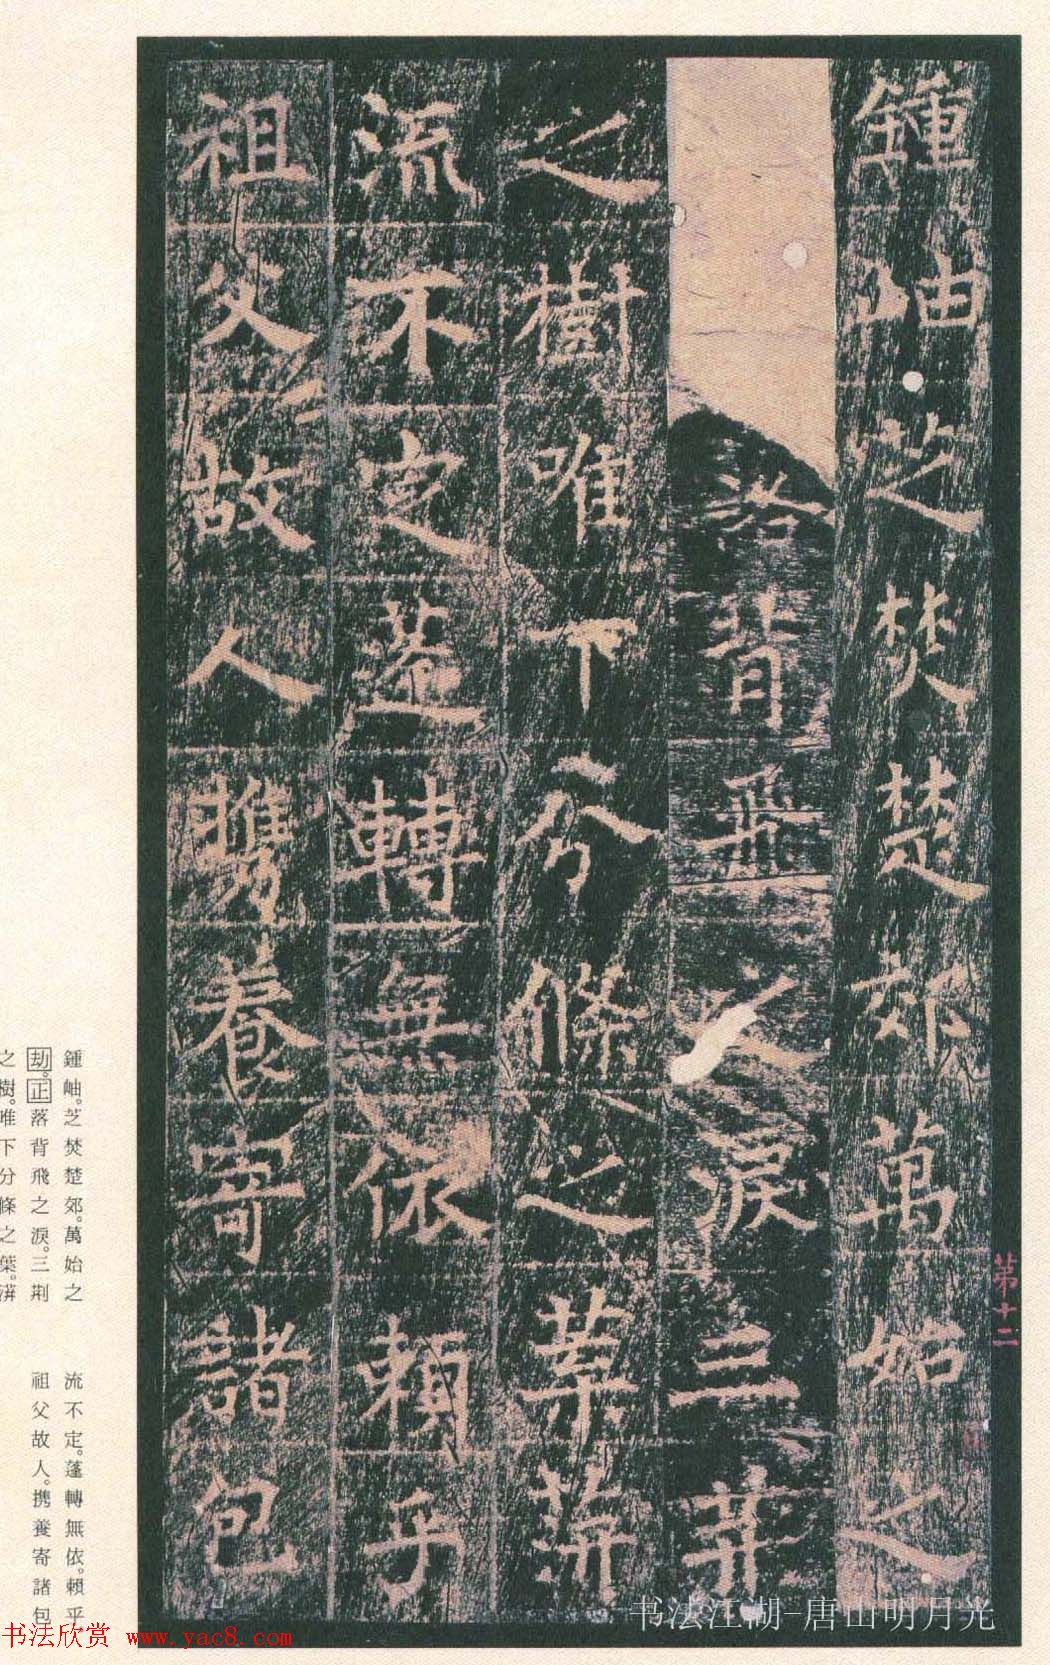 鍾岫芝焚楚郊萬始之
落背飛之淚三荊
之樹唯下分條之葉蓱
流不定蓬轉無依賴乎
祖父故人攜養寄諸包
第十二
鍾岫。芝焚楚郊。萬始之
劫。正落背飛之淚。三荊
之樹。唯下分條之葉。蓱
流不定。蓬轉無依。賴乎
祖父故人。携養寄諸包
书法江湖-唐山明月光
书法欣赏 www.yac8.com